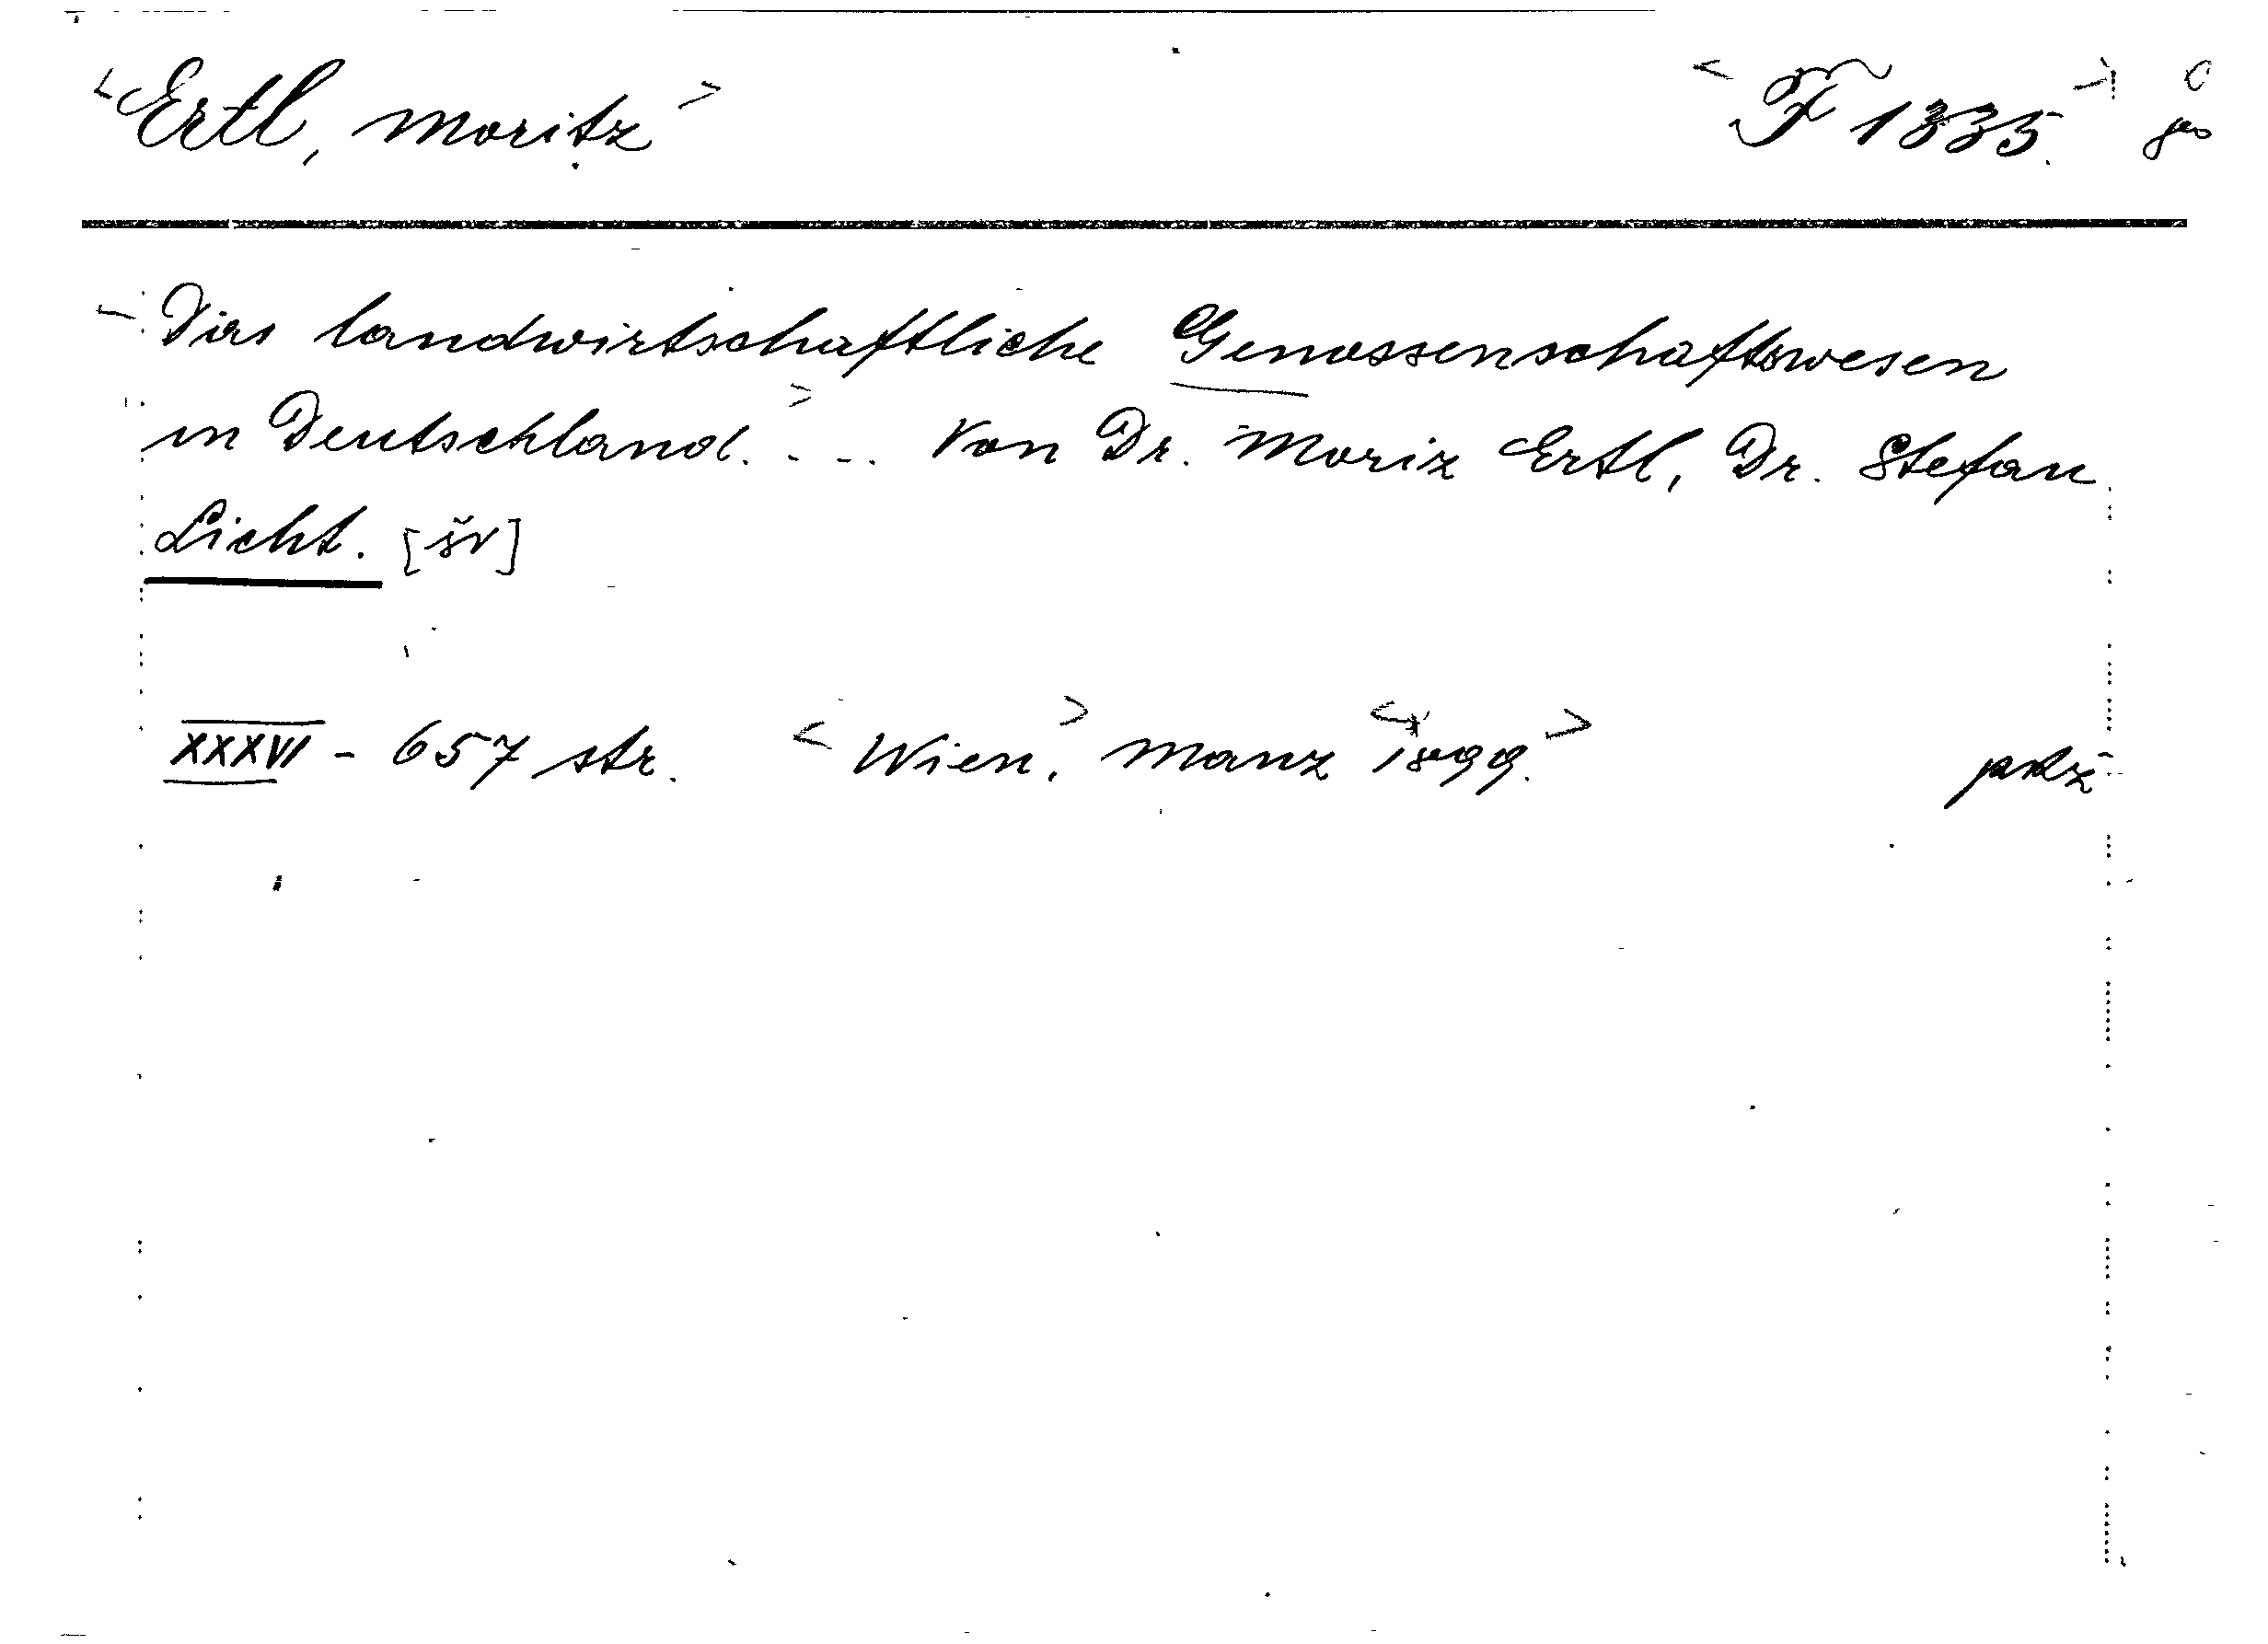 <Ertl, Moritz> <F 1335.>
Das landwirtschaftliche Genossenschaftswesen
in Deutschland.> ... Von Dr. Moriz Ertl, Dr. Stefan
Licht. [šv]
XXXVI - 657 str. <Wien,> Manz <1899.>